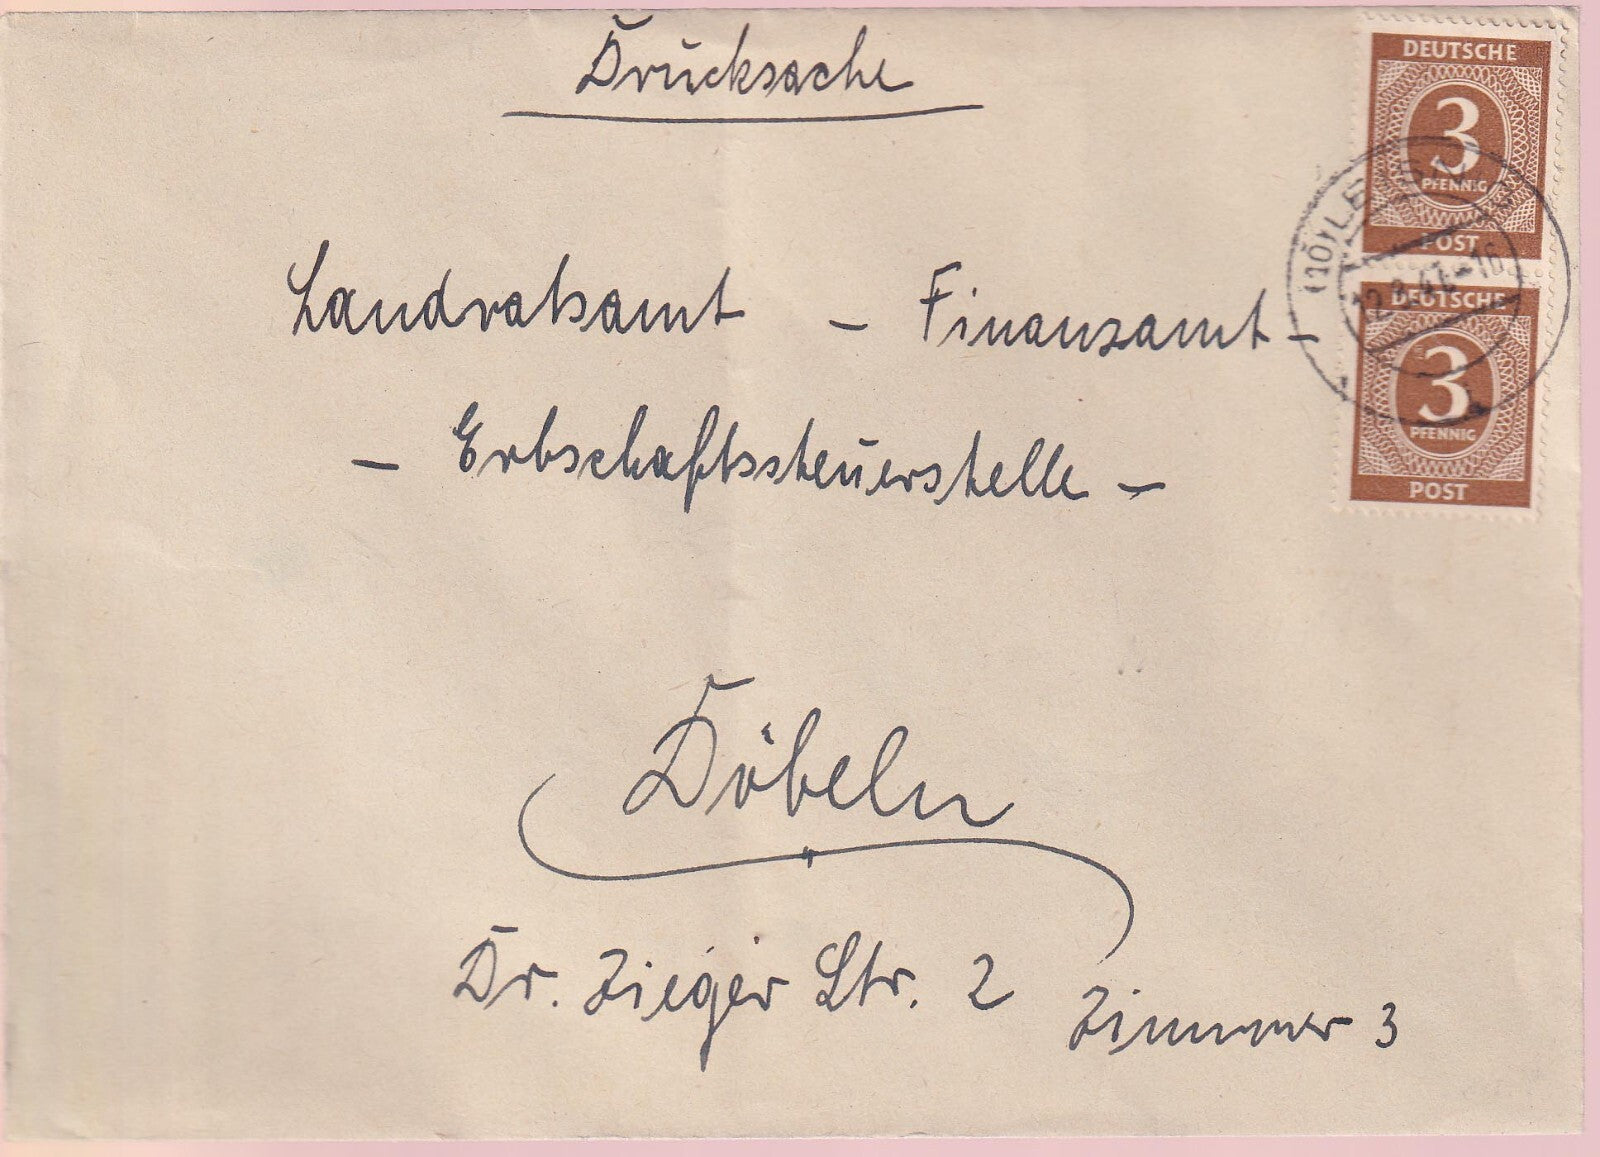 Drucksache
Landratsamt - Finanzamt -
- Erbschaftssteuerstelle -
Döbeln
Dr. Zieger Str. 2 Zimmer 3
DEUTSCHE
3
PFENNIG
POST
DEUTSCHE
3
PFENNIG
POST
(10) LE
47-16